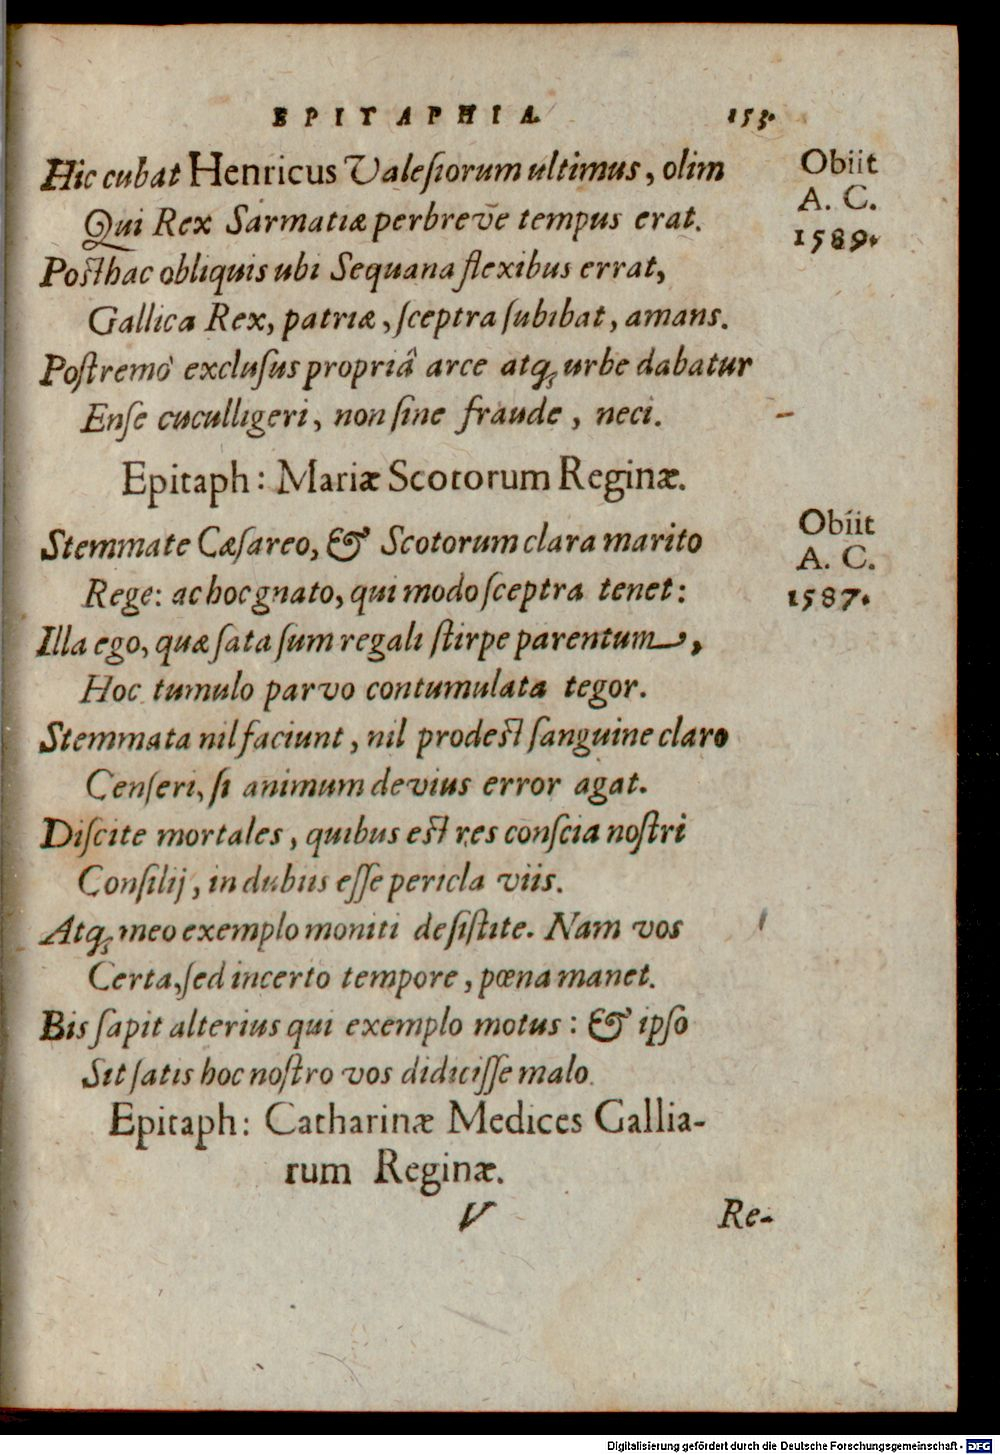 EPITAPHIA. 153.
Hic cubat Henricus Valeſiorum ultimus, olim
Qui Rex Sarmatiæ perbreve tempus erat.
Obiit
A. C.
1589.
Poſthac obliquis ubi Sequana flexibus errat,
Gallica Rex, patriæ, ſceptra ſubibat, amans.
Poſtremò excluſus propriâ arce atq́; urbe dabatur
Enſe cuculligeri, non ſine fraude, neci.
Epitaph: Mariæ Scotorum Reginæ.
Stemmate Cæſareo, & Scotorum clara marito
Rege: ac hoc gnato, qui modo ſceptra tenet:
Obíit
A. C.
1587.
Illa ego, quæ ſata ſum regali ſtirpe parentum,
Hoc tumulo parvo contumulata tegor.
Stemmata nil faciunt, nil prodeſt ſanguine claro
Cenſeri, ſi animum devius error agat.
Diſcite mortales, quibus eſt res conſcia noſtri
Conſilij, in dubiis eſſe pericla viis.
Atq́; meo exemplo moniti deſiſtite. Nam vos
Certa, ſed incerto tempore, pœna manet.
Bis ſapit alterius qui exemplo motus: & ipſo
Sit ſatis hoc noſtro vos didiciſſe malo.
Epitaph: Catharinæ Medices Gallia-
rum Reginæ.
V Re-
Digitalisierung gefördert durch die Deutsche Forschungsgemeinschaft - DFG